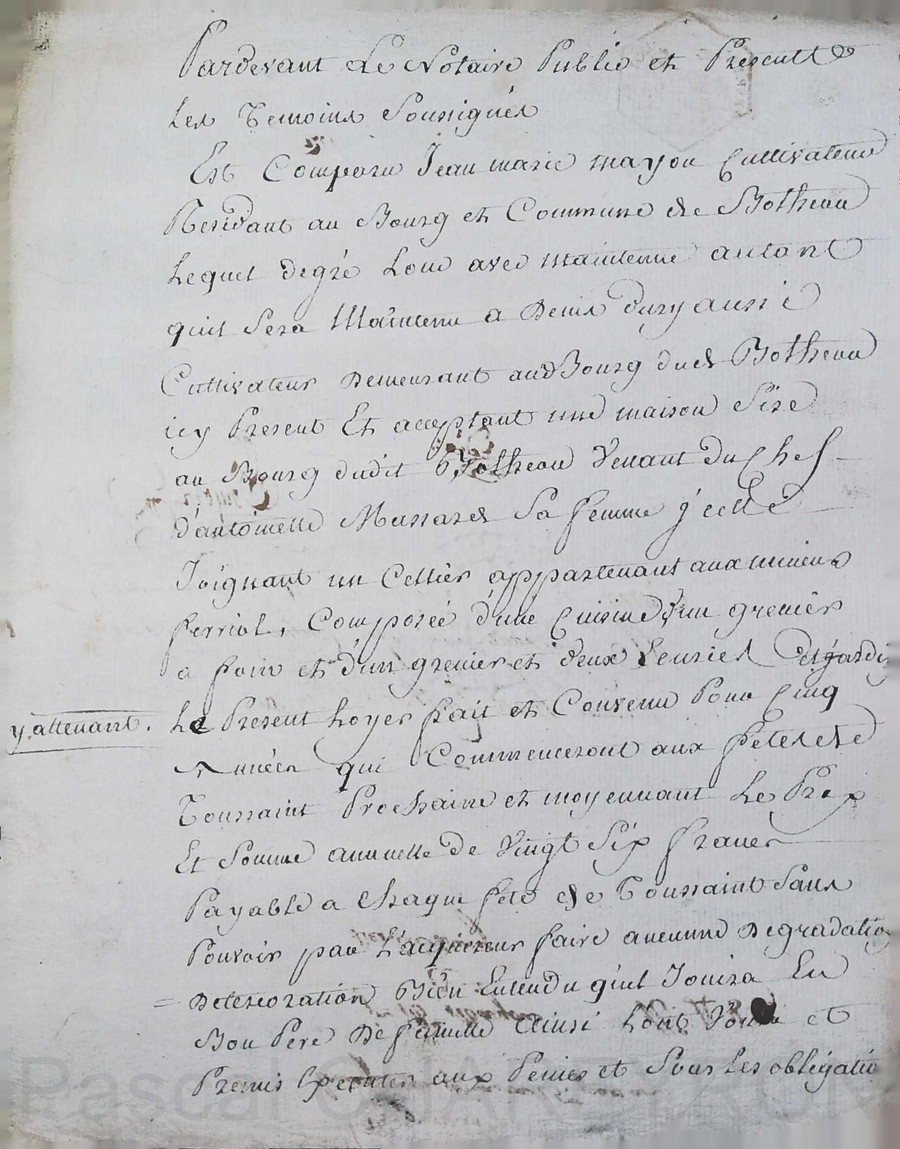 Pardevant Le Notaire Public et Presents
Les Temoins Soussignés
Est Comparu Jean marie mayou Cultivateur
Residant au Bourg et Commune de Botheou
Lequel degré Loue avec maintenue autant
quil Sera Maintenu a Denis Dury aussi
Cultivateur Demeurant au Bourg dud Botheou
icy Present Et acceptant une maison Sise
au Bourg dudit Botheou Venant du Chef
d'antoinette Massard Sa femme jcelle
Joignant un Cellier appartenant aux mineurs
ferriol, Composée d'une Cuisine d'un grenier
a foin et d'un grenier et deux
y attenant.
Le Present Loyer fait et Convenu Pour Cinq
Années qui Commenceront aux fetes de
Toussaint Prochaine et moyennant Le Prix
Et Somme annuelle de Vingt Six francs
Payable a Chaque fete de Toussaint Sans
Pouvoir par L'acquereur faire aucunne Degradation
= Deterioration Bien Entendu qu'il Jouira En
Bon Pere De famille Ainsi Lont Voulu et
Promis Executer aux Peines et Sous Les obligatio
Pascal CHARI